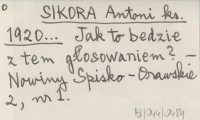 SIKORA Antoni ks.
1920... Jak to bedzie
z tem głosowaniem? –
Nowiny Spisko-Orawskie
2, nr 1.